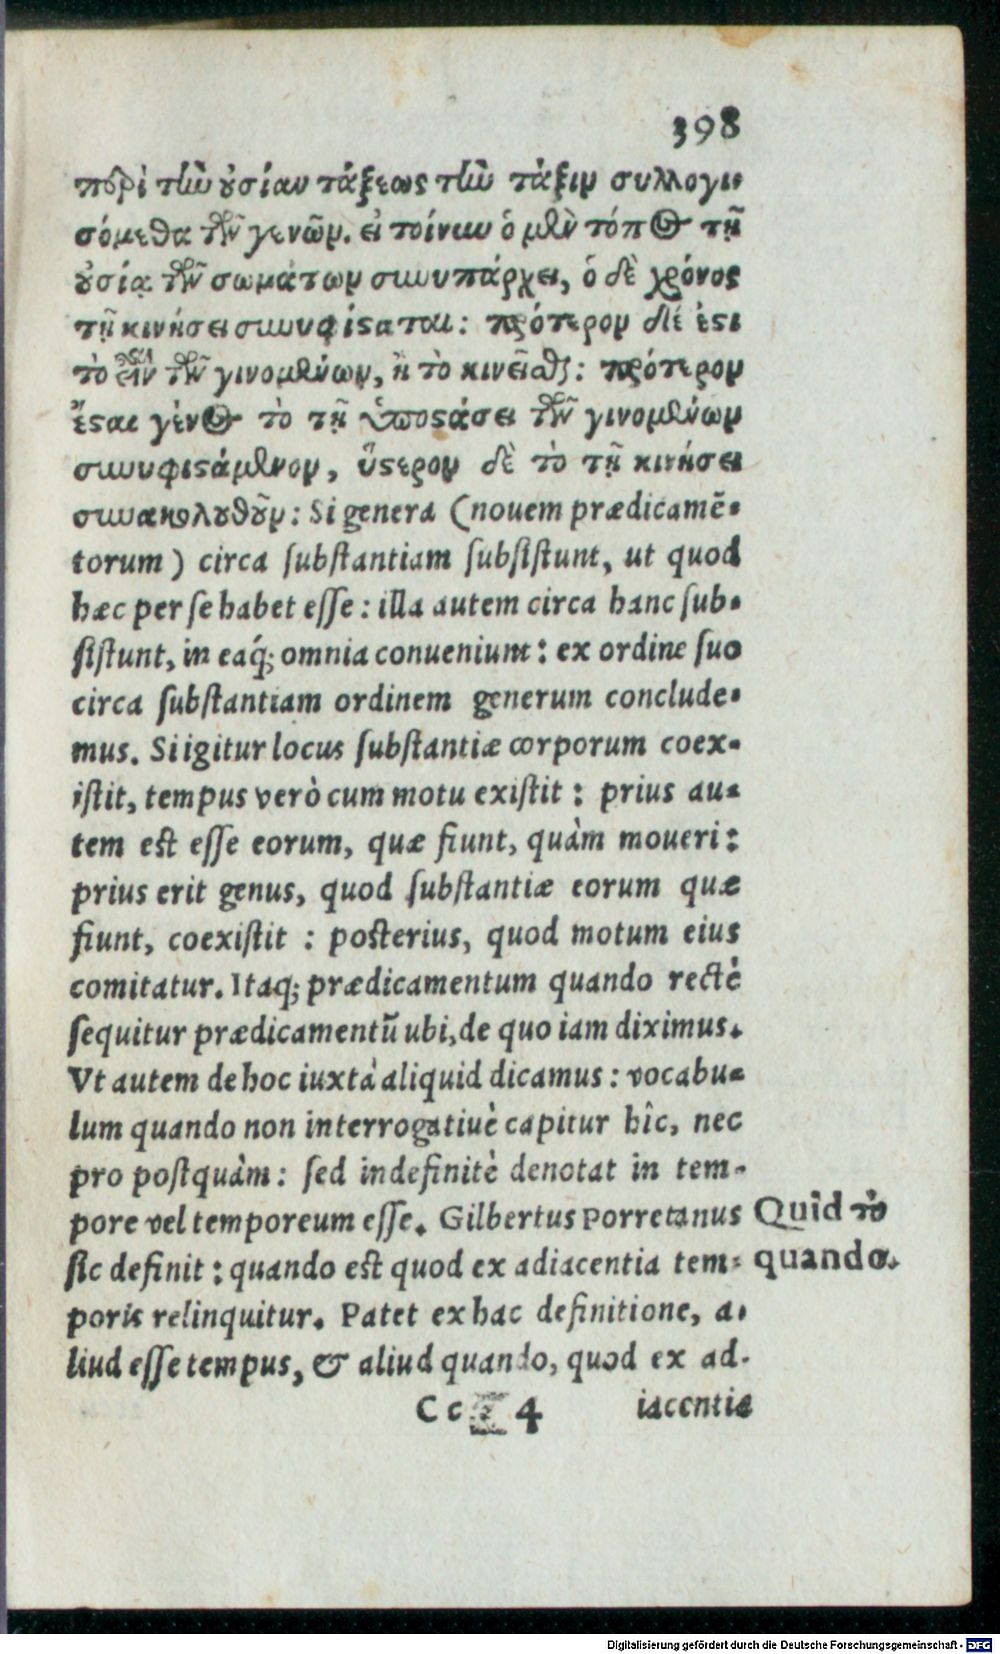 398
περὶ τὴν οὐσίαν τάξεως τὴν τάξιν συλλογι-
σόμεθα τῶν γενῶν. εἰ τοίνυν ὁ μὲν τόπος τῇ
οὐσίᾳ τῶν σωμάτων συνυπάρχει, ὁ δὲ χρόνος
τῇ κινήσει συνυφίσαται: πρότερον δέ ἐστι
τὸ εἶναι τῶν γινομένων, ἢ τὸ κινεῖσθαι: πρότερον
ἔσται γένος τὸ τῇ ὑποστάσει τῶν γινομένων
συνυφιστάμενον, ὕστερον δὲ τὸ τῇ κινήσει
συνακολουθοῦν: Si genera (nouem prædicamē-
torum) circa ſubſtantiam ſubſiſtunt, ut quod
hæc per ſe habet eſſe: illa autem circa hanc ſub-
ſiſtunt, in eaq́; omnia conueniunt: ex ordine ſuo
circa ſubſtantiam ordinem generum conclude-
mus. Si igitur locus ſubſtantiæ corporum coex-
iſtit, tempus verò cum motu exiſtit: prius au-
tem eſt eſſe eorum, quæ fiunt, quàm moueri:
prius erit genus, quod ſubſtantiæ eorum quæ
fiunt, coexiſtit: poſterius, quod motum eius
comitatur. Itaq; prædicamentum quando rectè
ſequitur prædicamentū ubi, de quo iam diximus.
Vt autem de hoc iuxtà aliquid dicamus: vocabu-
lum quando non interrogatiuè capitur hîc, nec
pro poſtquàm: ſed indefinitè denotat in tem-
pore vel temporeum eſſe. Gilbertus Porretanus
ſic definit: quando eſt quod ex adiacentia tem-
poris relinquitur. Patet ex hac definitione, a-
liud eſſe tempus, & aliud quando, quod ex ad-
Cc 4 iacentia
Quid τὸ
quando.
Digitalisierung gefördert durch die Deutsche Forschungsgemeinschaft - DFG